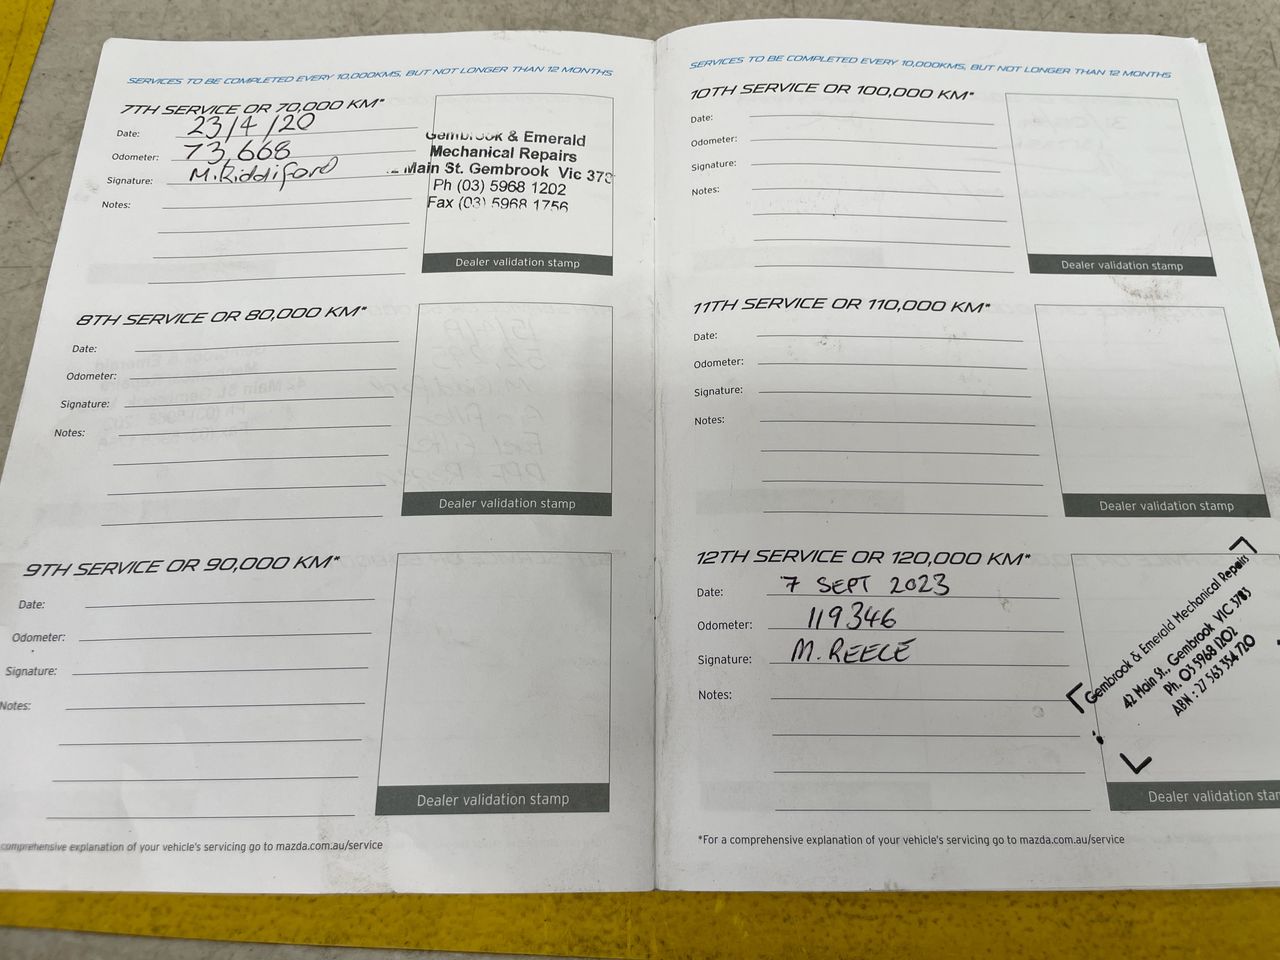 SERVICES TO BE COMPLETED EVERY 10,000KMS, BUT NOT LONGER THAN 12 MONTHS
7TH SERVICE OR 70,000 KM*
Date: 23/4/20
Odometer: 73,668
Signature: M.Riddiford
Notes:
Gembrook & Emerald
Mechanical Repairs
Main St. Gembrook Vic 378
Ph (03) 5968 1202
Fax (03) 5968 1756
Dealer validation stamp
8TH SERVICE OR 80,000 KM*
Date:
Odometer:
Signature:
Notes:
Dealer validation stamp
9TH SERVICE OR 90,000 KM*
Date:
Odometer:
Signature:
Notes:
Dealer validation stamp
comprehensive explanation of your vehicle's servicing go to mazda.com.au/service
SERVICES TO BE COMPLETED EVERY 10,000KMS, BUT NOT LONGER THAN 12 MONTHS
10TH SERVICE OR 100,000 KM*
Date:
Odometer:
Signature:
Notes:
Dealer validation stamp
11TH SERVICE OR 110,000 KM*
Date:
Odometer:
Signature:
Notes:
Dealer validation stamp
12TH SERVICE OR 120,000 KM*
Date: 7 SEPT 2023
Odometer: 119346
Signature: M. REECE
Notes:
Gembrook & Emerald Mechanical Repairs
42 Main St., Gembrook VIC 3783
Ph. 03 5968 1202
ABN : 27 563 354 720
Dealer validation star
*For a comprehensive explanation of your vehicle's servicing go to mazda.com.au/service